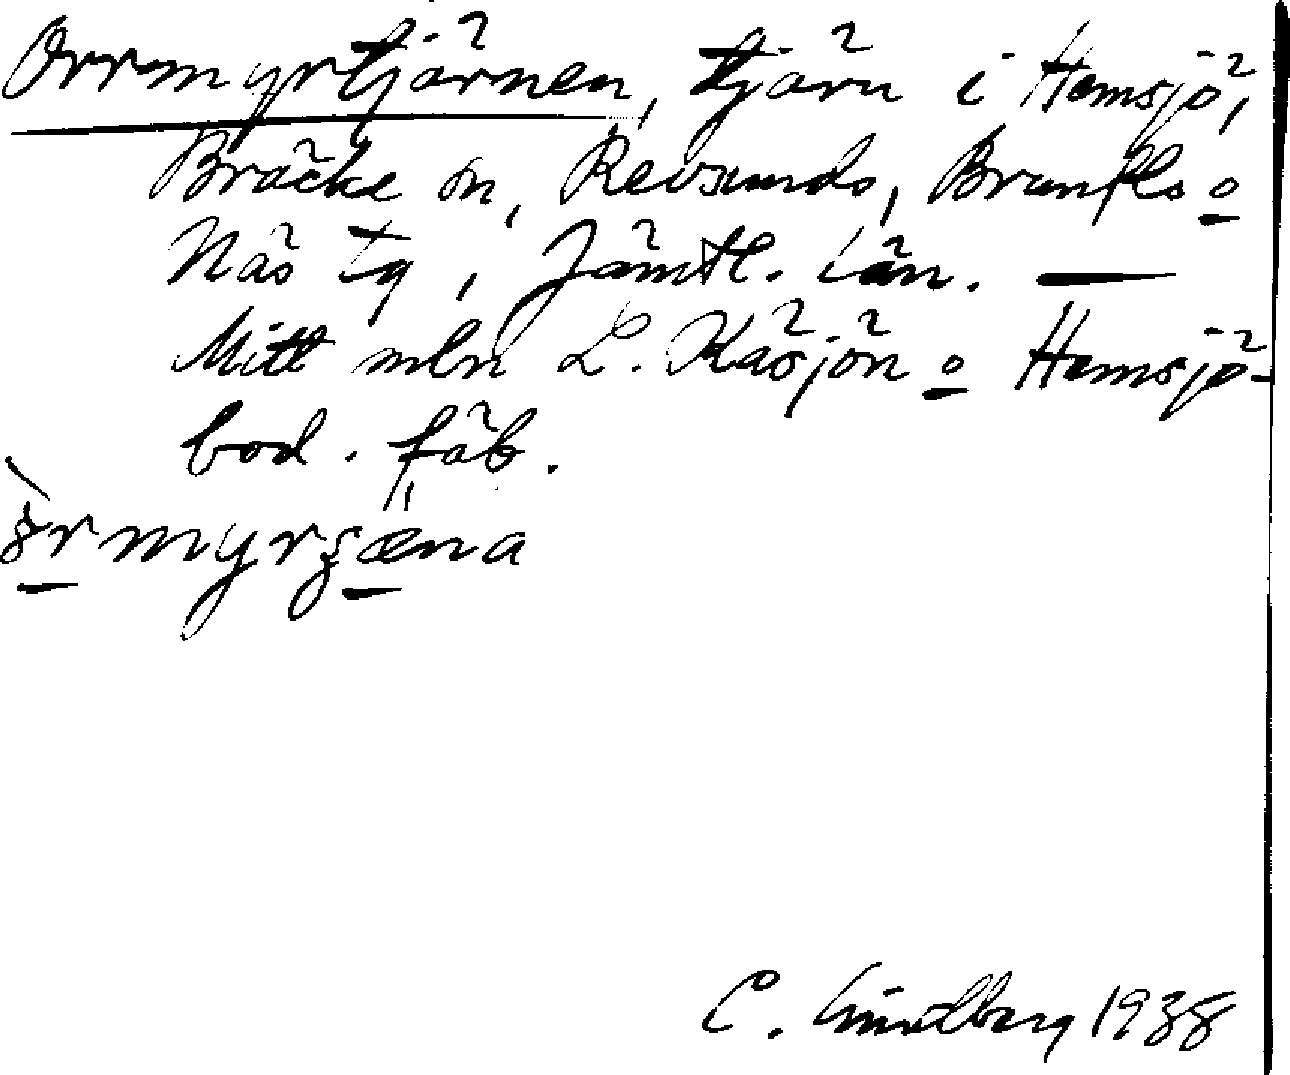 Orrmyrtjärnen, tjärn i Hemsjö,
Bräcke sn, Revsunds, Brunflo o
Näs tg, Jämtl. län. —
Mitt mln L. Kåsjön o Hemsjö-
bod. fäb.
C. Lindberg 1938